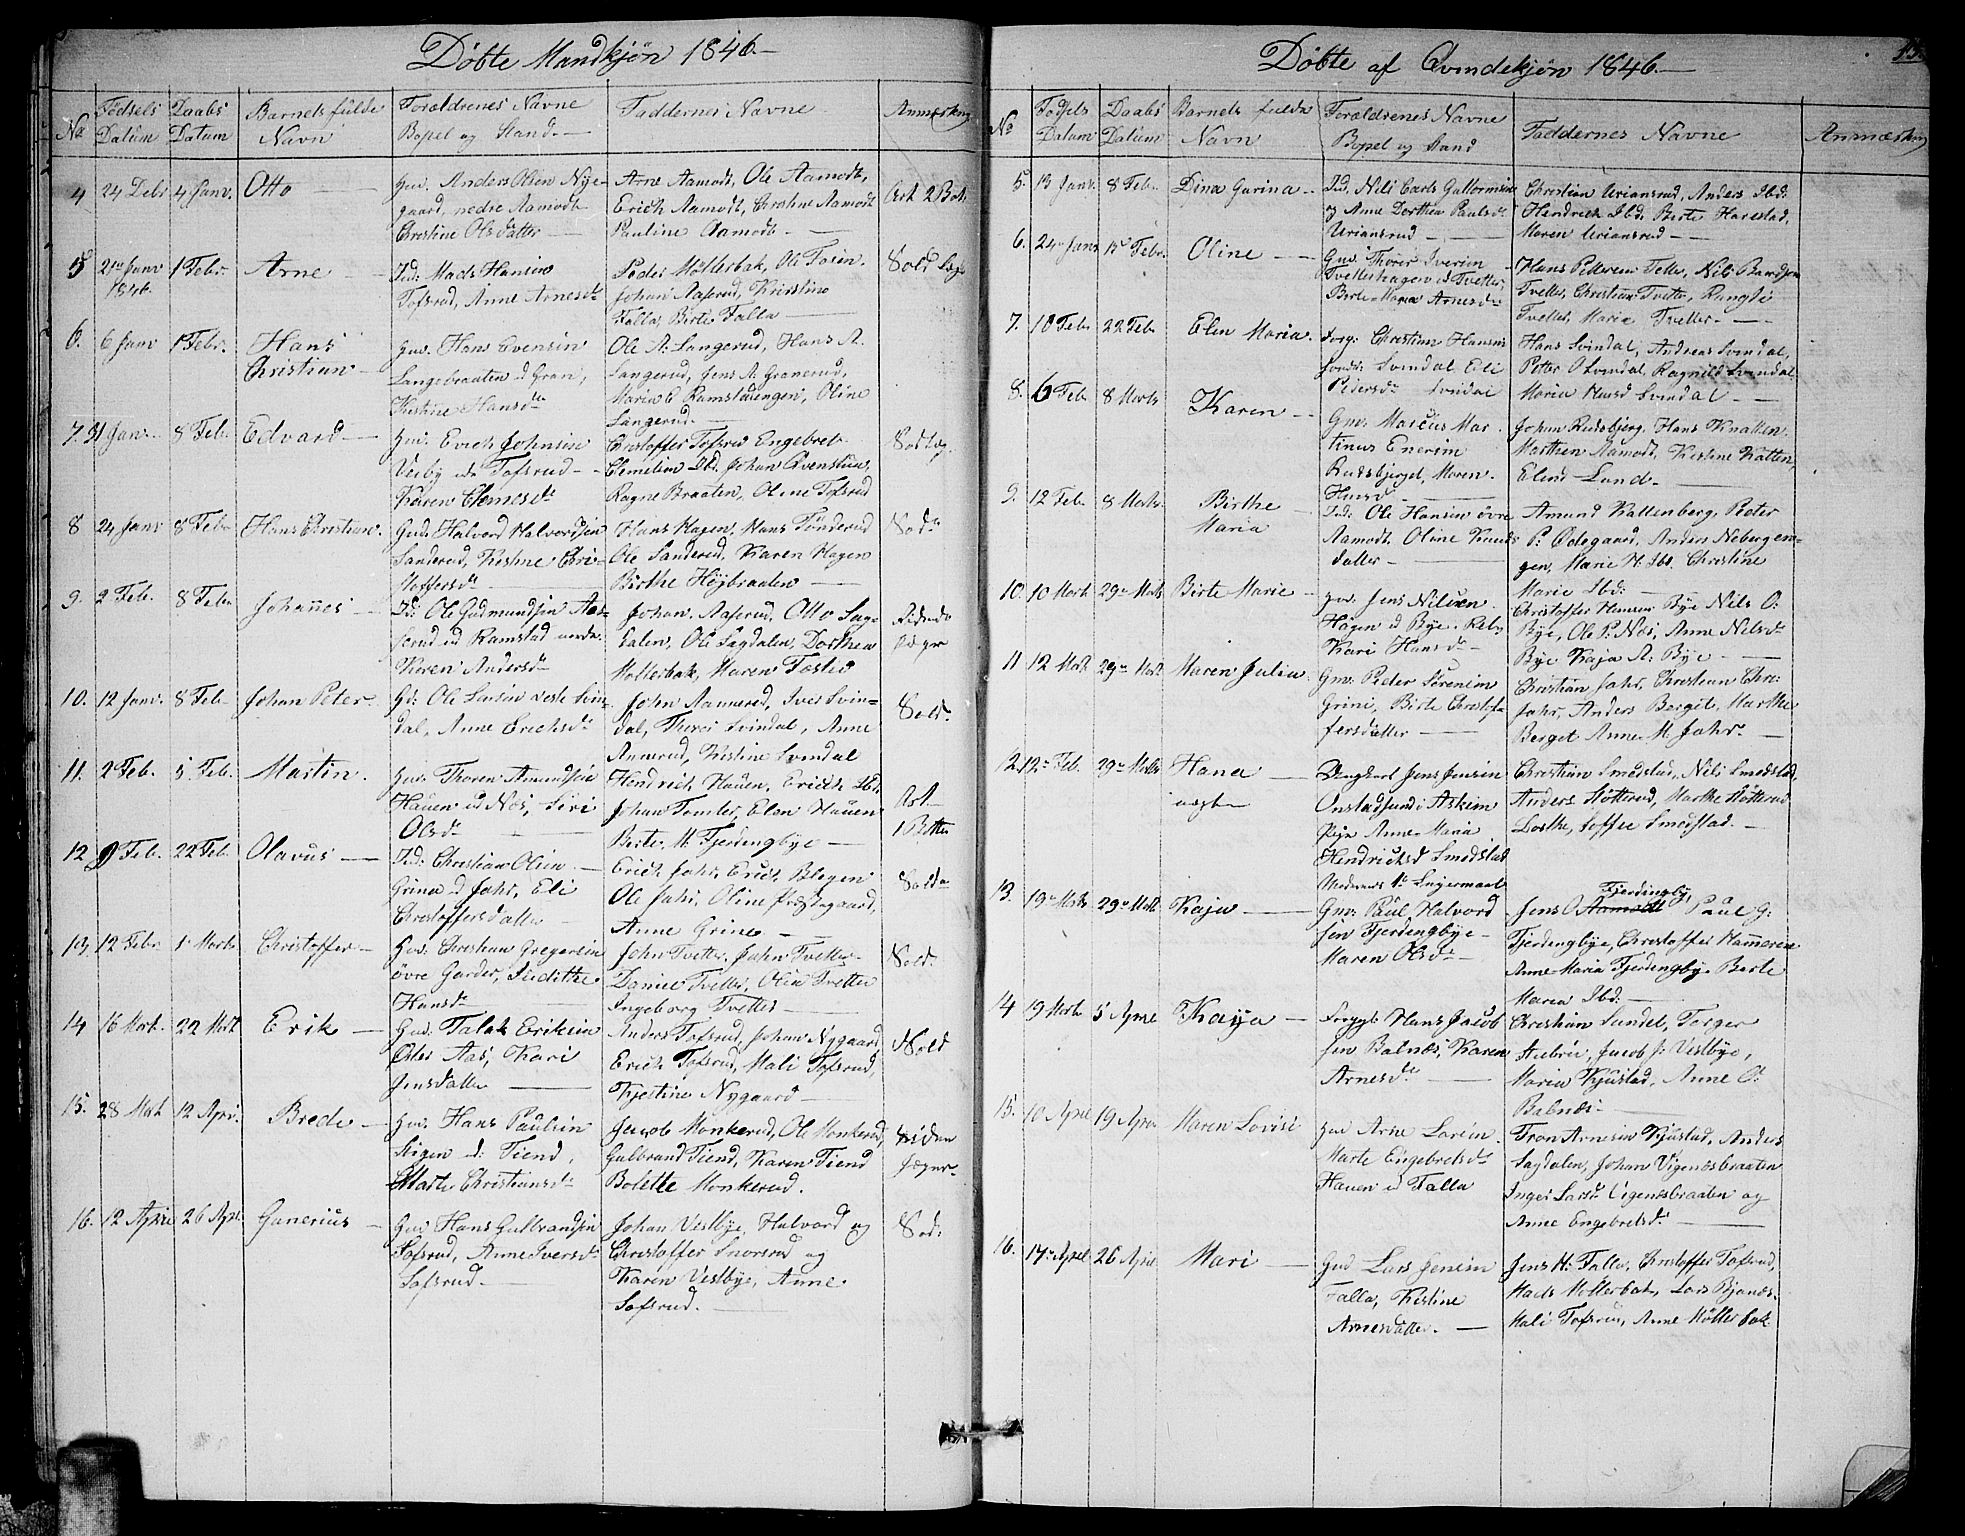 Döbte Mandkjön 1846.
No
Födsels Datum
Daabs Datum
Barnets fulde Navn
Forældrenes Navne Bopel og Stand.
Faddernes Navne
Anmerkng
4 24 Debr 4 Janv. Otto
Gm. Anders Olsen Nye-
gaard, nedre Aamodt
Christine Olsdatter
Arne Aamodt, Ole Aamodt,
Erich Aamodt, Caroline Aamodt
Pauline Aamodt
Art 2 Bat.
5 21 Janv 1846. 1 Febr. Arne
Ind: Mads Hansen
Tofsrud, Anne Arnesdr
Peder Möllerbak, Ole Tosen.
Johan Aaserud, Kristine
Falla, Birte Falla
Sold
6. 6 Janv 1 Febr. Hans Christian
Gm. Hans Evensen
Langebraaten d Gran,
Kirstine Hansdr
Ole A. Langerud, Hans A.
Langerud, Jens A. Granerud,
Maria C Ramstadengen, Oline
Langerud
7 31 Jan. 8 Feb. Edvard
Gm. Erich Johnsen
Visby ud Tofsrud
Karen Clemesdr
Christoffer Tofsrud Engebret
Clemetsen Ibd. Johan Qvenstuen,
Ragne Braaten, Oline Tofsrud
8 24 Janv 8 Feb Hans Christian.
Gm: Halvord Halvordsen
Sanderud, Kirstine Chri-
stoffersdr
Hans Hagen, Hans Tönderud
Ole Sanderud, Karen Hagen
Birthe Höybraaten
Sod
9. 2 Feb. 8 Feb Johannes
Id: Ole Gudmundsen Aas-
serud ud Ramstad
Karen Andersdr
Johan Aaserud, Otto Sag-
dalen, Ole Sagdalen, Dorthea
Möllerbak, Maren Tosten
10. 12 Janv. 8 Feb Johan Peter
Gd: Ole Larsen vestr Svin-
dal, Anne Erichsdr
John Aannerud, Iver Svin-
dal, Thurs Svindal, Anne
Annerud, Kirstine Svindal
Sold.
11. 2 Feb. 5 Feb. Martin.
Gm. Thoren Amundsen
Hauen ud Næs, Siri
Olsdr
Hendrich Hauen, Erich Ibd,
Johan Tomter, Elen Hauen
Birte M. Fjerdengbye
Art 1 Batter
12 9 Feb. 22 Feb Olavus
Ind: Christian Olsen
Grina d Jahr, Eli
Christoffersdatter
Erich Jahr, Erich Blegen
Ole Jahr, Oline Præstegaard,
Anne Grine
Sold
13, 12 Febr 1 Marts Christoffer
Gm. Christian Gregersen
övre Garder, Judithe
Hansdr
John Tvetter, John Tvetter
Daniel Tvetter, Olia Tvetter
Ingeborg Tvetter
Sold
14 16 Mart. 22 Mart Erik
Gm: Talak Eriksen
Öster Aas, Kari
Jensdatter
Anders Tofsrud, Johan Nygaard
Erich Tofsrud, Mali Tofsrud,
Kjestine Nygaard
Sold
15. 28 Mart 12 April. Brede
Gm. Hans Paulsen
Stigen d: Tiend,
Marte Christiansdr
Jacob Monkerud, Ole Monkerud,
Gulbrand Tiend, Karen Tiend
Bolette Monkerud.
16. 12 April 26 Apl. Gunerius
Gm Hans Gulbrandsen
Sofsrud, Anne Iversdr
Sofsrud.
Johan Vestbye, Halvord og
Christoffer Snorsrud og
Karen Vestbye, Anne
Sofsrud.
Sod:
Döbte af Qvindekjön 1846.
No
Födsels Datum
Daabs Datum
Barnets fulde Navn
Forældrenes Navne Bopel og Stand
Faddernes Navne
Anmærkng
5. 13 Janv. 8 Feb. Dina Gurina
Ind, Nils Carls Guttormsen
og Anne Dorthea Paulsdr
Uriansrud
Christian Uriansrud, Anders Ibd:
Hendrich Ibd: Birte Harestad,
Maren Uriansrud
6. 24 Janv 15 Febr. Oline
Gm: Thorer Iversen
Tvetterhagen d Tvetter,
Birte Maria Arnesdr
Hans Pettersen Tetter, Nils Baardsen
Tvetter, Christian Tvetter, Rangdi
Tvetter, Maria Tvetter.
7. 10 Feb. 22 Feb Elen Maria.
Forg: Christian Hansen
Svindal Eli
Pedersdr Svindal
Hans Svindal, Andreas Svindal,
Petter O Svindal, Ragnild Svindal
Maria Svindal
8. 6 Feb 8 Marts Karen
Gm: Marcus Mar-
tinus Enersen
Rudsbjerget, Maren
Hansdr
Johan Rudsbjerg, Hans Knatten.
Marthea Aamodt, Kirstine Katten,
Eline Lund.
9. 12 Feb. 8 Marts Birthe Maria
Ind: Ole Hansen övre
Aamodt, Oline Knuds
datter
Amund Kattenberg, Peter
P: Ödegaard, Anders Nebergen-
gen, Marie H. Ibd. Christine
Marie Ibd:
10. 10 Mart 29 Mart Birte Marie
Gm. Jens Nilsen
Hagen d Bye. Reb
Kari Hansdr
Christoffer Hansen Bye Nils O:
Bye, Ole P: Næs, Anne Nilsdr
Bye Kaja A. Bye
11 12 Mart 29 Mart Maren Julia
Gm: Peder Sörensen
Grini, Birte Christof-
fersdatter
Christian Jahr, Christian Chr:
Jahr, Anders Berget, Marthe
Berget Anne M. Jahr.
12. 12 Feb. 29 Marts Hana
uægte
Ungkarl Jens Jensen
Onstadsund i Askim
Pige Anne Maria
Hendrichsd Smedstad
Moderens 1te Leiermaal
Christian Smedstad, Nils Smedstad,
Anders Slötterud, Marthe Slötterud
Dorthe, Soffie Smedstad.
13. 19 Marts 29 Mart Kaja
Gm: Paul Halvord
sen Fjerdengbye
Maren Olsdr
Jens O Aamodt Fjerdingby, Paul G:
Fjerdengbye, Christoffer Hammeren
Anne Maria Fjerdengbye Berte
Maria Ibd:
4 19 Marts 5 Aprl Kaja
Hans Jacob
sen Babnæs, Karen
Arnesdr
Christian Sundet, Torger
Aubröe, Jacob J: Vestbye,
Maria Kjustad, Anne O:
Babnæs
15. 10 April 19 Apr Maren Lovise
Gm Arne Larsen
Marte Engebretsdr
Hauen ud Falla
Tron Arnesen Kjustad, Anders
Sagdalen, Johan Vigenæsbraaten
Inger Larsd Vigenæsbraaten og
Anne Engebretsdr
16. 17 April 26 April Mari
Gm Lars Jensen
Falla, Kistine
Arnesdatter.
Jens H: Falla, Christoffer Tofsrud,
Mads Möllerbak, Lars Bjonæs.
Mali Tofsrud, Anne Möllerbak